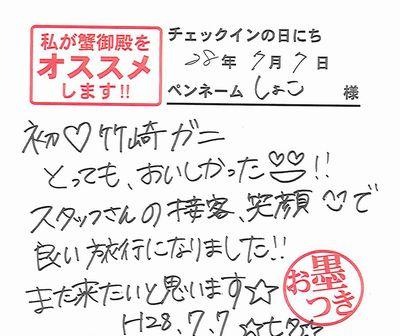 私が蟹御殿を
オススメ
します!!
チェックインの日にち
28年7月7日
ペンネーム しょこ 様
初♡竹崎ガニ
とっても、おいしかった!!
スタッフさんの接客、笑顔で
良い旅行になりました!!
また来たいと思います☆
H28.7.7 ☆七夕☆
お墨つき